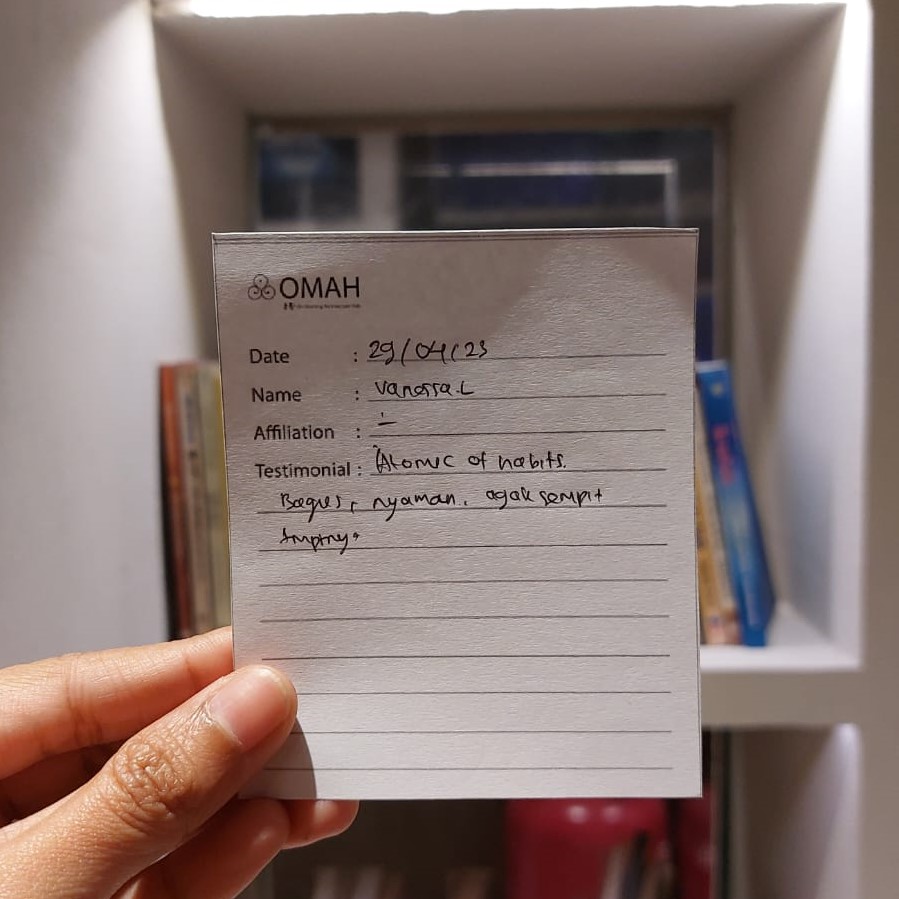 OMAH
Date : 29/04/23
Name : Vanessa.L
Affiliation : -
Testimonial : Atomic of habits.
Bagus, nyaman. agak sempit
tmptnya